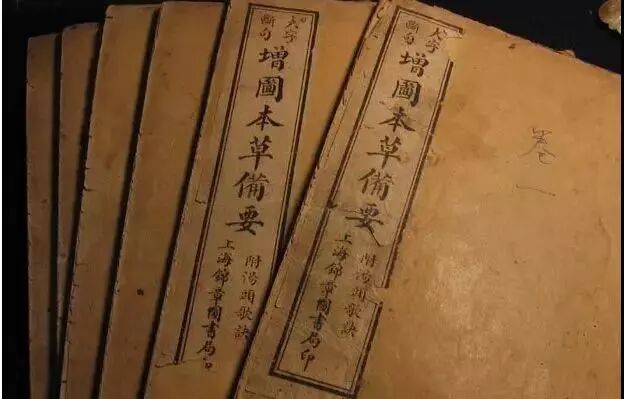 大字
断句
增圖本草備要
附湯頭歌訣
上海錦章圖書局印
大字
断句
增圖本草備要
附湯頭歌訣
上海錦章圖書局印
卷一